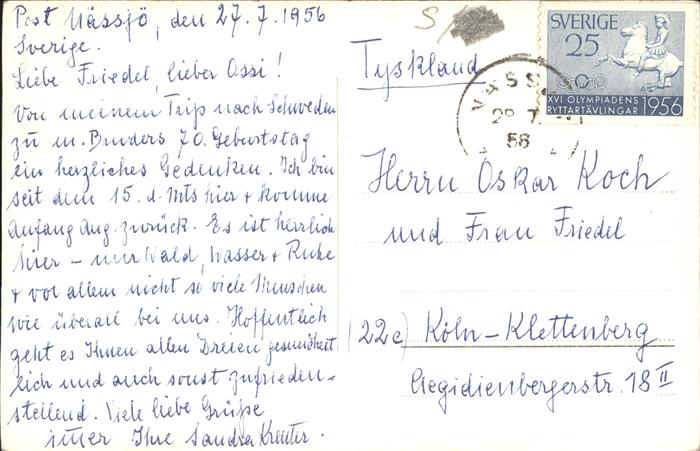 Post Nässjö, den 27.7.1956
Sverige.
Liebe Friedel, lieber Ossi!
Von meinem Trip nach Schweden
zu m. Bruders 70. Geburtstag
ein herzliches Gedenken. Ich bin
seit dem 15. d. Mts hier + komme
Anfang Aug. zurück. Es ist herrlich
hier – nur Wald, Wasser + Ruhe
+ vor allem nicht so viele Menschen
wie überall bei uns. Hoffentlich
geht es Ihnen allen Dreien gesundheit-
lich und auch sonst zufrieden-
stellend. Viele liebe Grüße
Ihre Sandra
Tyskland
SVERIGE
25
XVI OLYMPIADENS
RYTTARTÄVLINGAR 1956
56
Herrn Oskar Koch
und Frau Friedel
(22c) Köln-Klettenberg
Aegidienbergerstr. 18 II